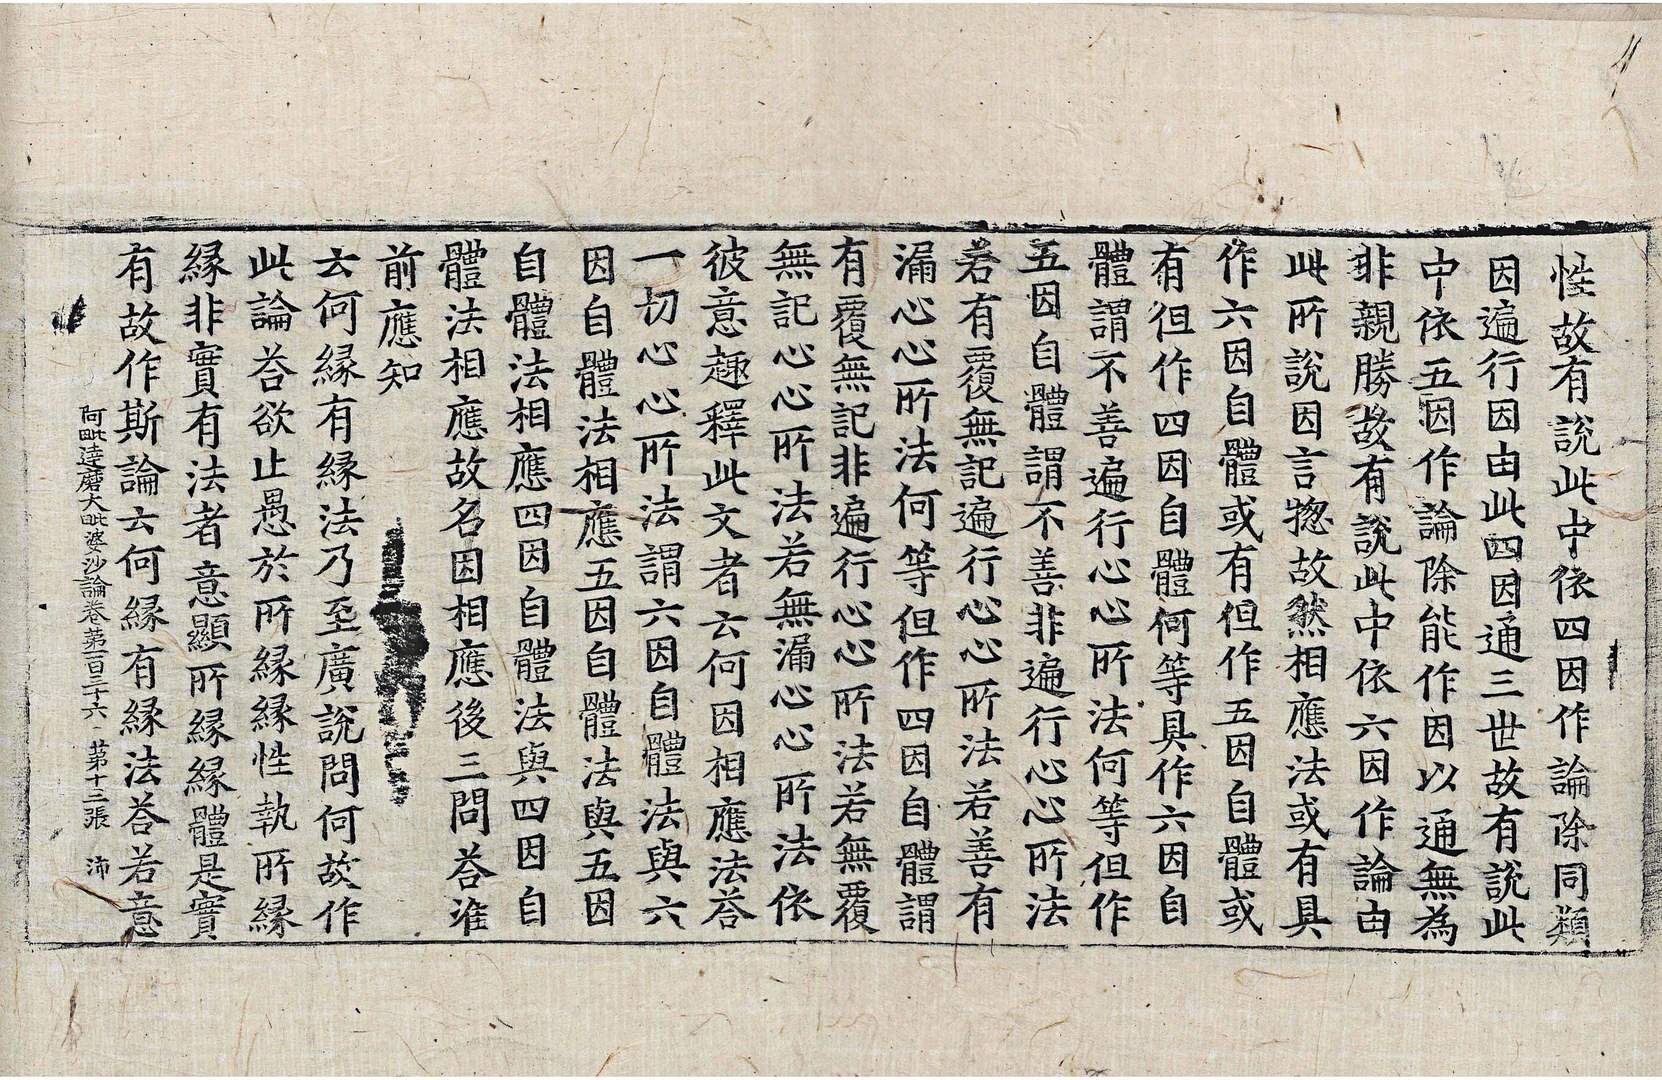 性故有說此中依四因作論除同類
因遍行因由此四因通三世故有說此
中依五因作論除能作因以通無為
非親勝故有說此中依六因作論由
此所說因言惣故然相應法或有具
作六因自體或有但作五因自體或
有但作四因自體何等具作六因自
體謂不善遍行心心所法何等但作
五因自體謂不善非遍行心心所法
若有覆無記遍行心心所法若善有
漏心心所法何等但作四因自體謂
有覆無記非遍行心心所法若無覆
無記心心所法若無漏心心所法依
彼意趣釋此文者云何因相應法荅
一切心心所法謂六因自體法與六
因自體法相應五因自體法與五因
自體法相應四因自體法與四因自
體法相應故名因相應後三問荅准
前應知
云何緣有緣法乃至廣說問何故作
此論荅欲止愚於所緣緣性執所緣
緣非實有法者意顯所緣緣體是實
有故作斯論云何緣有緣法荅若意
阿毗達磨大毗婆沙論卷第一百三十六 第十三張 沛